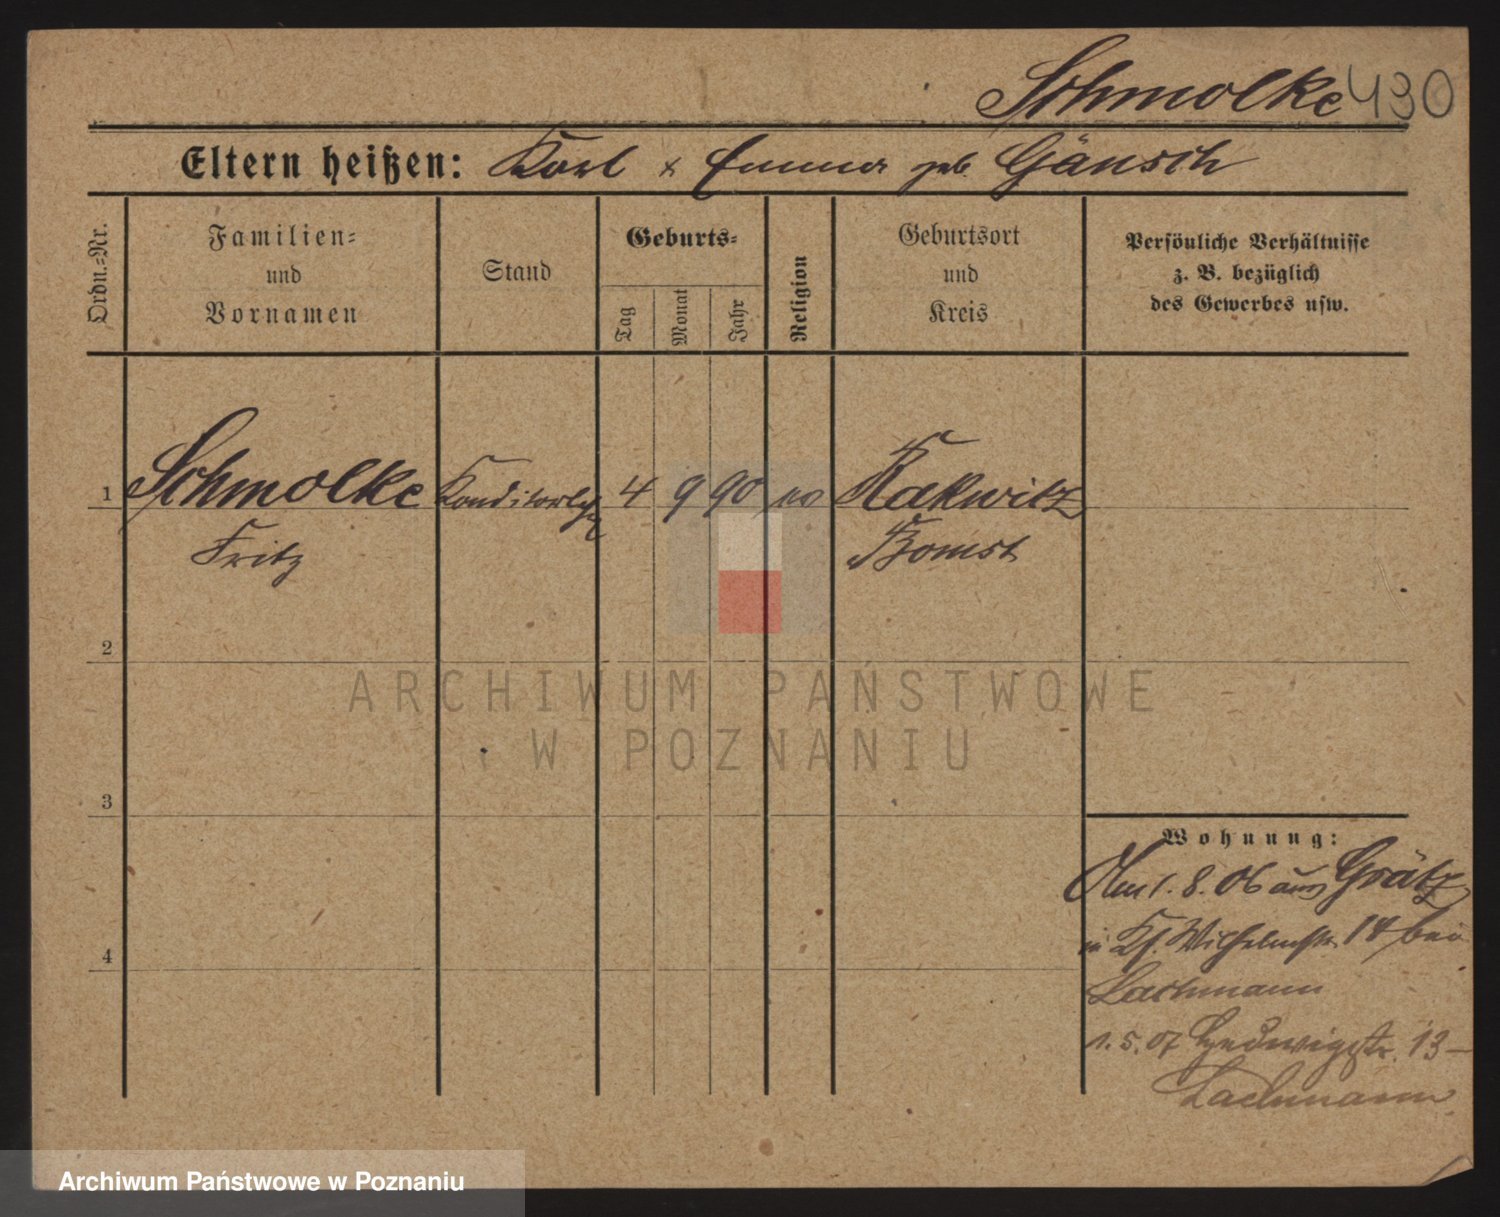 Schmolke 430
Eltern heißen: Karl & Emma geb. Gänsch
Ordn.-Nr.
Familien-
und
Vornamen
Stand
Geburts-
Tag
Monat
Jahr
Religion
Geburtsort
und
Kreis
Persönliche Verhältnisse
z. B. bezüglich
des Gewerbes usw.
1 Schmolke Konditorlehrl. 4 9 90 Rakwitz
Fritz Bomst
2
3
4
Wohnung:
Am 1. 8. 06 aus Grätz
n. Kf. Wilhelmstr. 14 bei
Lachmann
1. 5. 07 Hedwigstr. 13 –
Lachmann
ARCHIWUM PAŃSTWOWE
W POZNANIU
Archiwum Państwowe w Poznaniu